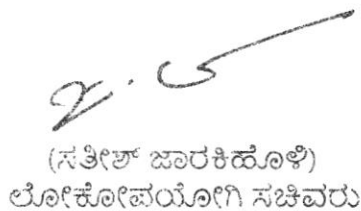 (ಸತೀಶ್ ಜಾರಕಿಹೊಳಿ)
ಲೋಕೋಪಯೋಗಿ ಸಚಿವರು